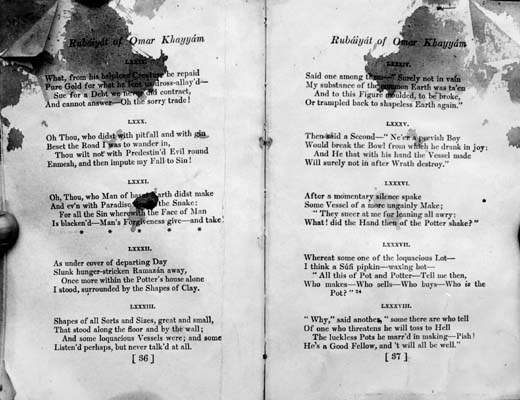 Rubáiyát of Omar Khayyám
LXXIX.
What, from his helpless Creature be repaid
Pure Gold for what he lent us dross-allay'd—
Sue for a Debt we never did contract,
And cannot answer—Oh the sorry trade!
LXXX.
Oh Thou, who didst with pitfall and with gin
Beset the Road I was to wander in,
Thou wilt not with Predestin'd Evil round
Enmesh, and then impute my Fall to Sin!
LXXXI.
Oh, Thou, who Man of baser Earth didst make
And ev'n with Paradise the Snake:
For all the Sin wherewith the Face of Man
Is blacken'd—Man's Forgiveness give—and take!
LXXXII.
As under cover of departing Day
Slunk hunger-stricken Ramazán away,
Once more within the Potter's house alone
I stood, surrounded by the Shapes of Clay.
LXXXIII.
Shapes of all Sorts and Sizes, great and small,
That stood along the floor and by the wall;
And some loquacious Vessels were; and some
Listen'd perhaps, but never talk'd at all.
[ 36 ]
Rubáiyát of Omar Khayyám
LXXXIV.
Said one among them—"Surely not in vain
My substance of the common Earth was ta'en
And to this Figure moulded, to be broke,
Or trampled back to shapeless Earth again."
LXXXV.
Then said a Second—"Ne'er a peevish Boy
Would break the Bowl from which he drank in joy;
And He that with his hand the Vessel made
Will surely not in after Wrath destroy."
LXXXVI.
After a momentary silence spake
Some Vessel of a more ungainly Make;
"They sneer at me for leaning all awry:
What! did the Hand then of the Potter shake?"
LXXXVII.
Whereat some one of the loquacious Lot—
I think a Súfi pipkin—waxing hot—
"All this of Pot and Potter—Tell me then,
Who makes—Who sells—Who buys—Who is the
Pot?" 24
LXXXVIII.
"Why," said another, "some there are who tell
Of one who threatens he will toss to Hell
The luckless Pots he marr'd in making—Pish!
He's a Good Fellow, and 't will all be well."
[ 37 ]